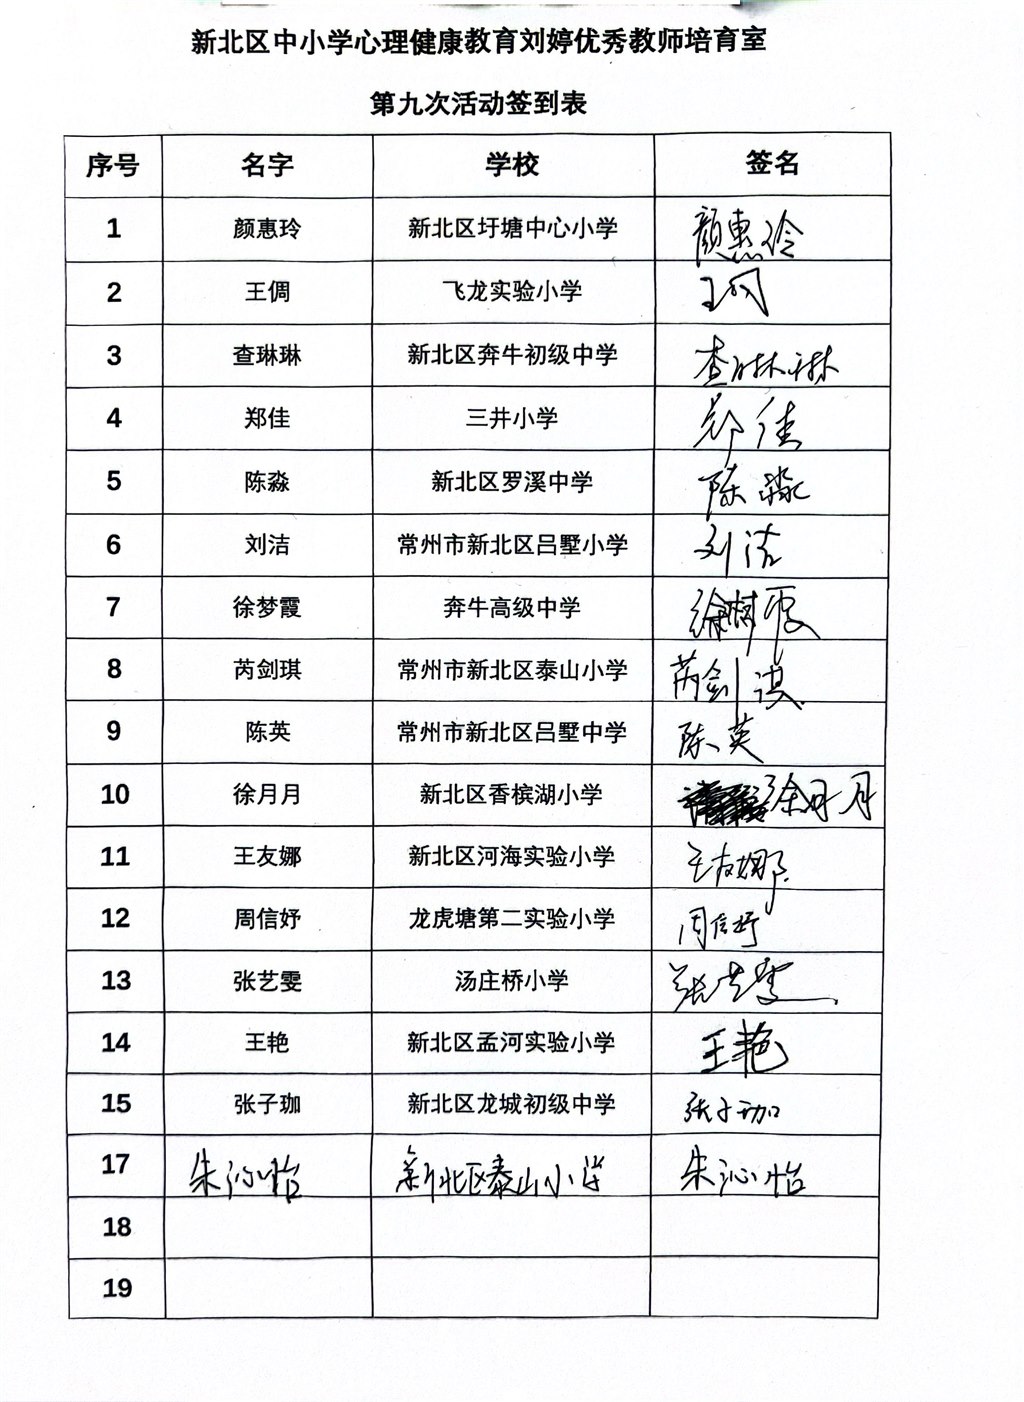 新北区中小学心理健康教育刘婷优秀教师培育室
第九次活动签到表
序号 名字 学校 签名
1 颜惠玲 新北区圩塘中心小学 颜惠玲
2 王倜 飞龙实验小学 王倜
3 查琳琳 新北区奔牛初级中学 查琳琳
4 郑佳 三井小学 郑佳
5 陈淼 新北区罗溪中学 陈淼
6 刘洁 常州市新北区吕墅小学 刘洁
7 徐梦霞 奔牛高级中学 徐梦霞
8 芮剑琪 常州市新北区泰山小学 芮剑琪
9 陈英 常州市新北区吕墅中学 陈英
10 徐月月 新北区香槟湖小学 徐月月
11 王友娜 新北区河海实验小学 王友娜
12 周信妤 龙虎塘第二实验小学 周信妤
13 张艺雯 汤庄桥小学 张艺雯
14 王艳 新北区孟河实验小学 王艳
15 张子珈 新北区龙城初级中学 张子珈
17 朱沁怡 新北区泰山小学 朱沁怡
18
19